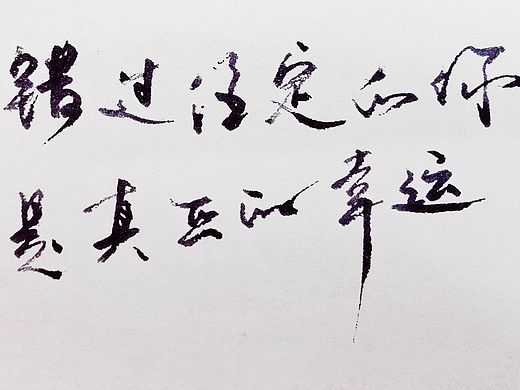 错过注定的你
是真正的幸运